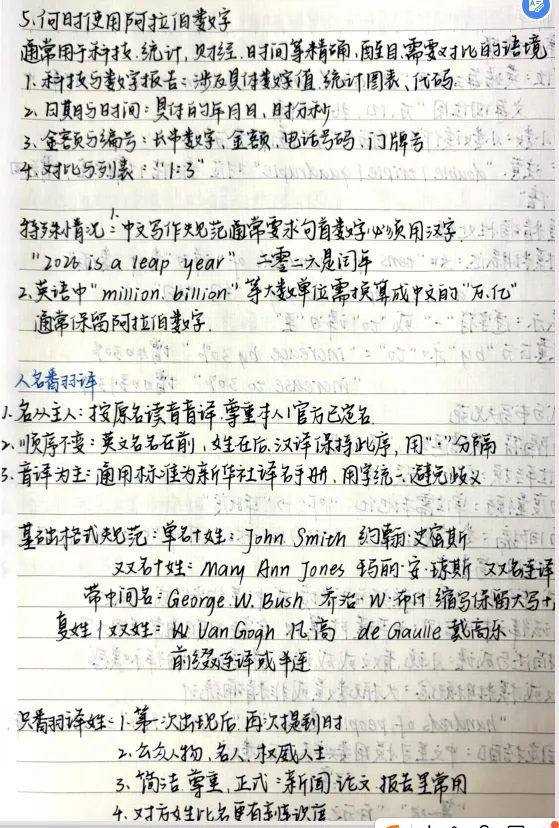 5.何时使用阿拉伯数字
通常用于科技.统计,财经.时间等精确,醒目.需要对比的语境
1.科技与数字报告:涉及具体数字值.统计图表、代码
2.日期与时间:具体的年月日,时分秒
3.金额与编号:长串数字.金额.电话号码.门牌号
4.对比与列表:"1:3"
特殊情况:1.中文写作规范通常要求句首数字必须用汉字
"2026 is a leap year" 二零二六是闰年
2.英语中"million.billion"等大数单位需换算成中文的"万.亿"
通常保留阿拉伯数字.
人名翻译
1.名从主人:按原名读音音译.尊重本人/官方已定名
2.顺序不变:英文名名在前,姓在后.汉译保持此序,用"·"分隔
3.音译为主:通用标准为新华社译名手册,用字统一.避免歧义
基础格式规范:单名+姓:John Smith 约翰·史密斯
双名+姓:Mary Ann Jones 玛丽·安·琼斯 双名连译
带中间名:George.W.Bush 乔治·W·布什 缩写保留大写+.
复姓/双姓: Van Gogh 凡高 de Gaulle 戴高乐
前缀连译或半连
只翻译姓:1.第一次出现后.再次提到时
2.公众人物,名人.权威人士
3.简洁.尊重.正式:新闻.论文.报告里常用
4.对方姓比名更有辨识度